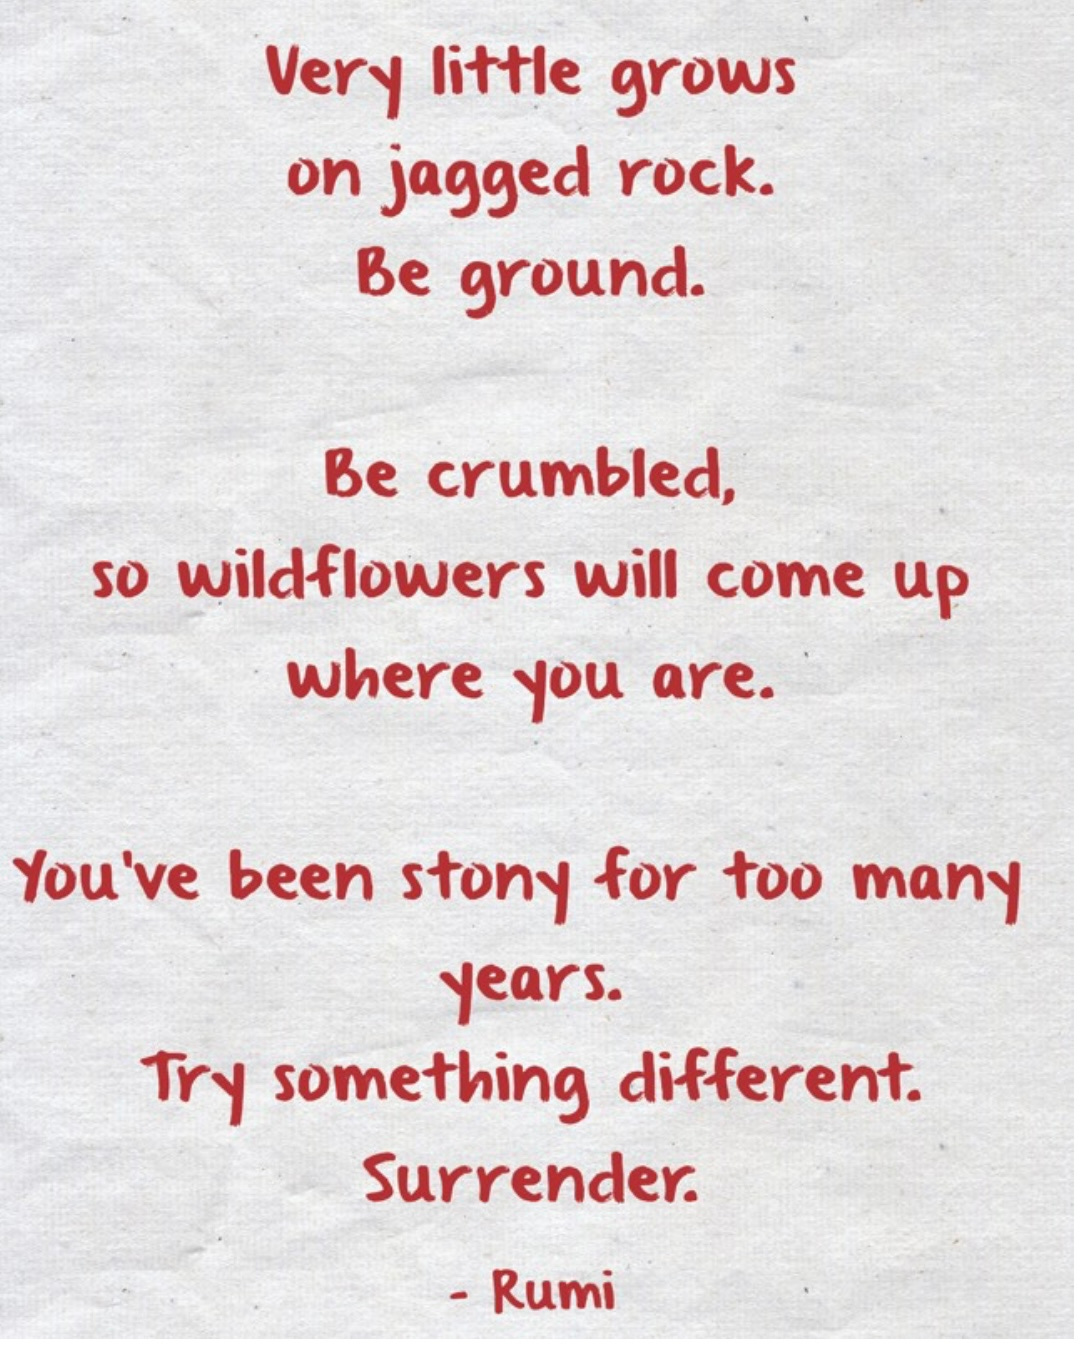 Very little grows
on jagged rock.
Be ground.
Be crumbled,
so wildflowers will come up
where you are.
You've been stony for too many
years.
Try something different.
Surrender.
- Rumi